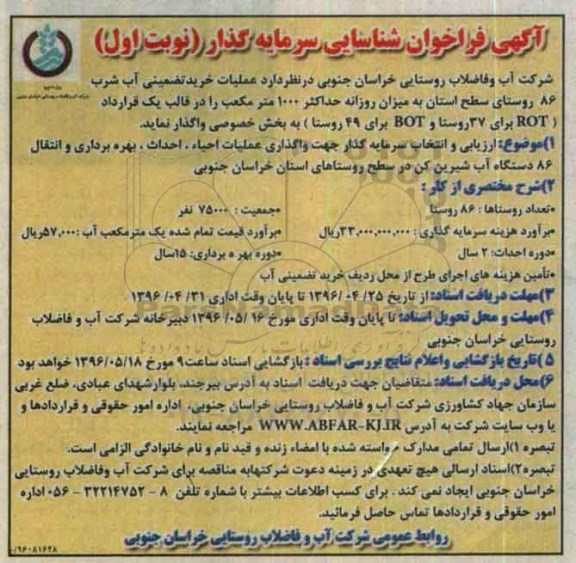 آگهی فراخوان شناسایی سرمایه گذار (نوبت اول)
شرکت آب وفاضلاب روستایی خراسان جنوبی درنظردارد عملیات خریدتضمینی آب شرب
۸۶ روستای سطح استان به میزان روزانه حداکثر ۱۰۰۰ متر مکعب را در قالب یک قرارداد
( ROT برای ۳۷روستا و BOT برای ۴۹ روستا ) به بخش خصوصی واگذار نماید.
۱)موضوع: ارزیابی و انتخاب سرمایه گذار جهت واگذاری عملیات احیاء ، احداث ، بهره برداری و انتقال
۸۶ دستگاه آب شیرین کن در سطح روستاهای استان خراسان جنوبی
۲)شرح مختصری از کار :
•تعداد روستاها : ۸۶ روستا •جمعیت : ۷۵۰۰۰ نفر
•برآورد هزینه سرمایه گذاری : ۳۳,۰۰۰,۰۰۰,۰۰۰ریال •برآورد قیمت تمام شده یک مترمکعب آب :۵۷,۰۰۰ریال
•دوره احداث: ۲ سال •دوره بهره برداری: ۱۵سال
•تأمین هزینه های اجرای طرح از محل ردیف خرید تضمینی آب
۳)مهلت دریافت اسناد: از تاریخ ۲۵/ ۰۴/ ۱۳۹۶ تا پایان وقت اداری ۳۱/ ۰۴/ ۱۳۹۶
۴)مهلت و محل تحویل اسناد: تا پایان وقت اداری مورخ ۱۶ /۰۵/ ۱۳۹۶ دبیرخانه شرکت آب و فاضلاب
روستایی خراسان جنوبی
۵)تاریخ بازگشایی واعلام نتایج بررسی اسناد :بازگشایی اسناد ساعت۹ مورخ ۱۳۹۶/۰۵/۱۸ خواهد بود
۶)محل دریافت اسناد: متقاضیان جهت دریافت اسناد به آدرس بیرجند، بلوارشهدای عبادی، ضلع غربی
سازمان جهاد کشاورزی شرکت آب و فاضلاب روستایی خراسان جنوبی، اداره امور حقوقی و قراردادها و
یا وب سایت شرکت به آدرس WWW.ABFAR-KJ.IR مراجعه نمایند.
تبصره ۱)ارسال تمامی مدارک خواسته شده با امضاء زنده و قید نام و نام خانوادگی الزامی است.
تبصره ۲)اسناد ارسالی هیچ تعهدی در زمینه دعوت شرکتهابه مناقصه برای شرکت آب وفاضلاب روستایی
خراسان جنوبی ایجاد نمی کند . برای کسب اطلاعات بیشتر با شماره تلفن ۸ - ۳۲۲۱۴۷۵۲ - ۰۵۶ اداره
امور حقوقی و قراردادها تماس حاصل فرمائید.
روابط عمومی شرکت آب و فاضلاب روستایی خراسان جنوبی
/۹۶۰۸۱۶۲۸